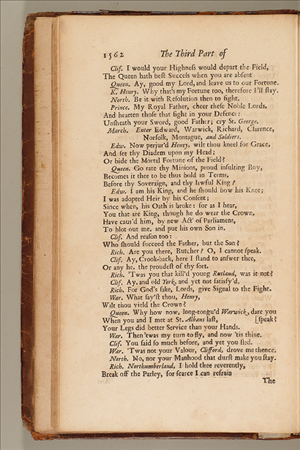 1562 The Third Part of
Clif. I would your Highness would depart the Field,
The Queen hath best Success when you are absent
Queen. Ay, good my Lord, and leave us to our Fortune.
K. Henry. Why that's my Fortune too, therefore I'll stay.
North. Be it with Resolution then to fight.
Prince. My Royal Father, cheer these Noble Lords,
And hearten those that fight in your Defence:
Unsheath your Sword, good Father; cry St. George.
March. Enter Edward, Warwick, Richard, Clarence,
Norfolk, Montague, and Soldiers.
Edw. Now perjur'd Henry, wilt thou kneel for Grace,
And set thy Diadem upon my Head;
Or bide the Mortal Fortune of the Field?
Queen. Go rate thy Minions, proud insulting Boy,
Becomes it thee to be thus bold in Terms,
Before thy Soveraign, and thy lawful King?
Edw. I am his King, and he should bow his Knee;
I was adopted Heir by his Consent;
Since when, his Oath is broke: for as I hear,
You that are King, though he do wear the Crown,
Have caus'd him, by new Act of Parliament,
To blot out me, and put his own Son in.
Clif. And reason too:
Who should succeed the Father, but the Son?
Rich. Are you there, Butcher? O, I cannot speak.
Clif. Ay, Crook-back, here I stand to answer thee,
Or any he, the proudest of thy sort.
Rich. 'Twas you that kill'd young Rutland, was it not?
Clif. Ay, and old York, and yet not satisfy'd.
Rich. For God's sake, Lords, give Signal to the Fight.
War. What say'st thou, Henry,
Wilt thou yield the Crown?
Queen. Why how now, long-tongu'd Warwick, dare you
When you and I met at St. Albans last, [speak?
Your Legs did better Service than your Hands.
War. Then 'twas my turn to fly, and now 'tis thine.
Clif. You said so much before, and yet you fled.
War. 'Twas not your Valour, Clifford, drove me thence.
North. No, nor your Manhood that durst make you stay.
Rich. Northumberland, I hold thee reverently,
Break off the Parley, for scarce I can refrain
The